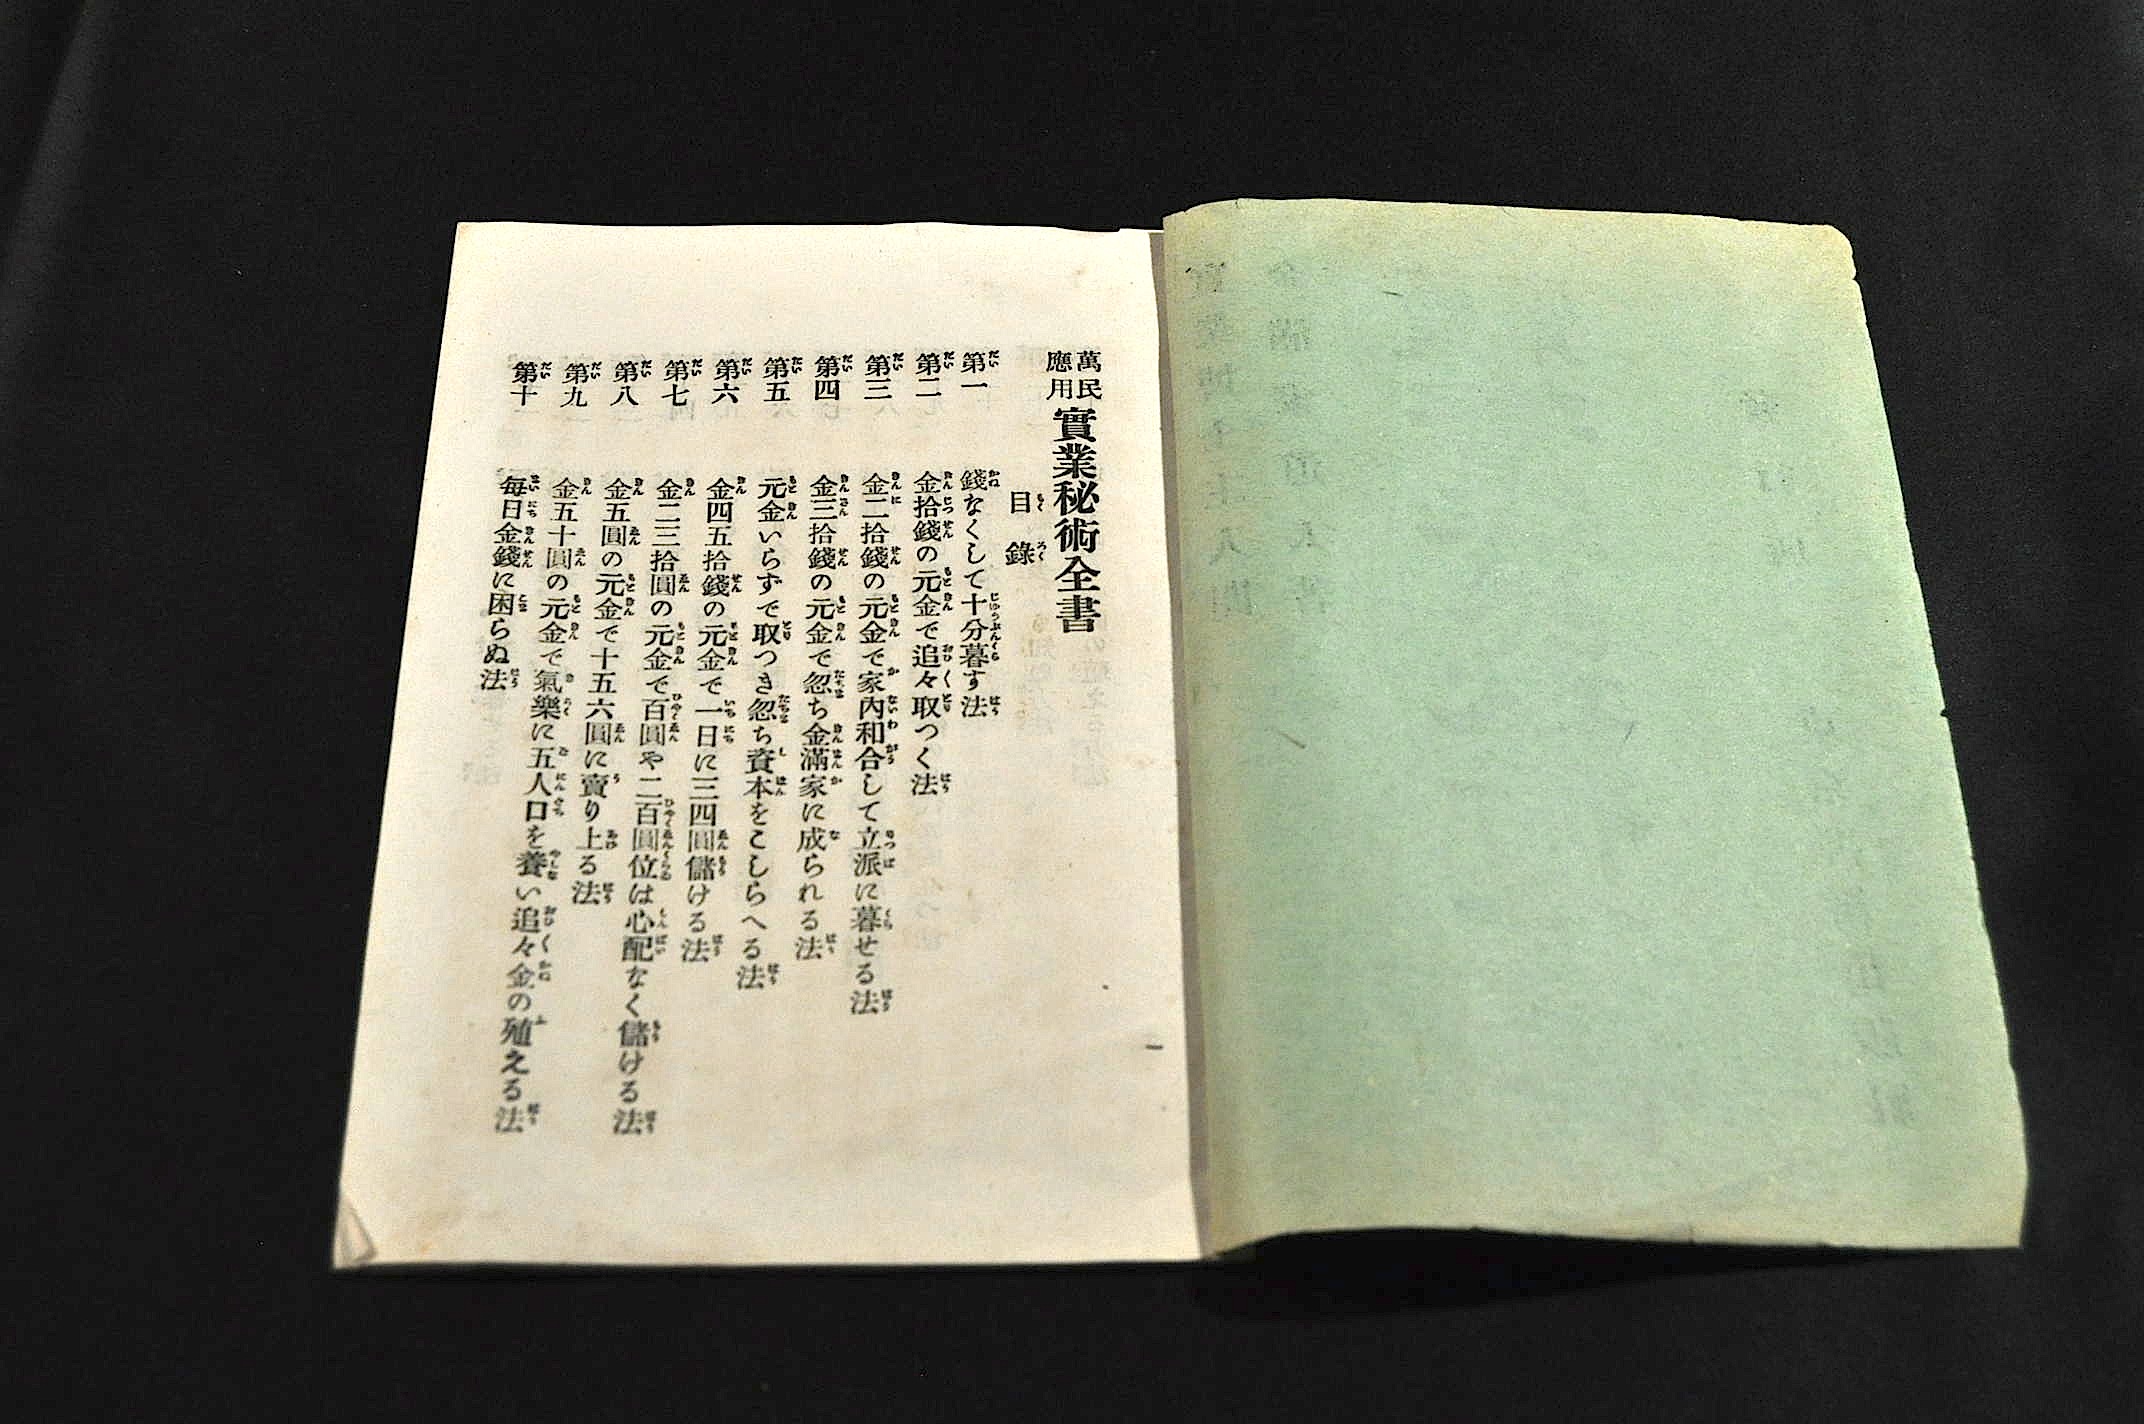 萬民應用 實業秘術全書
目錄
第一 錢なくして十分暮す法
第二 金拾錢の元金で追々取つく法
第三 金二拾錢の元金で家內和合して立派に暮せる法
第四 金三拾錢の元金で忽ち金滿家に成られる法
第五 元金いらずで取つき忽ち資本をこしらへる法
第六 金四五拾錢の元金で一日に三四圓儲ける法
第七 金二三拾圓の元金で百圓や二百圓位は心配なく儲ける法
第八 金五圓の元金で十五六圓に賣り上る法
第九 金五十圓の元金で氣樂に五人口を養い追々金の殖える法
第十 每日金錢に困らぬ法